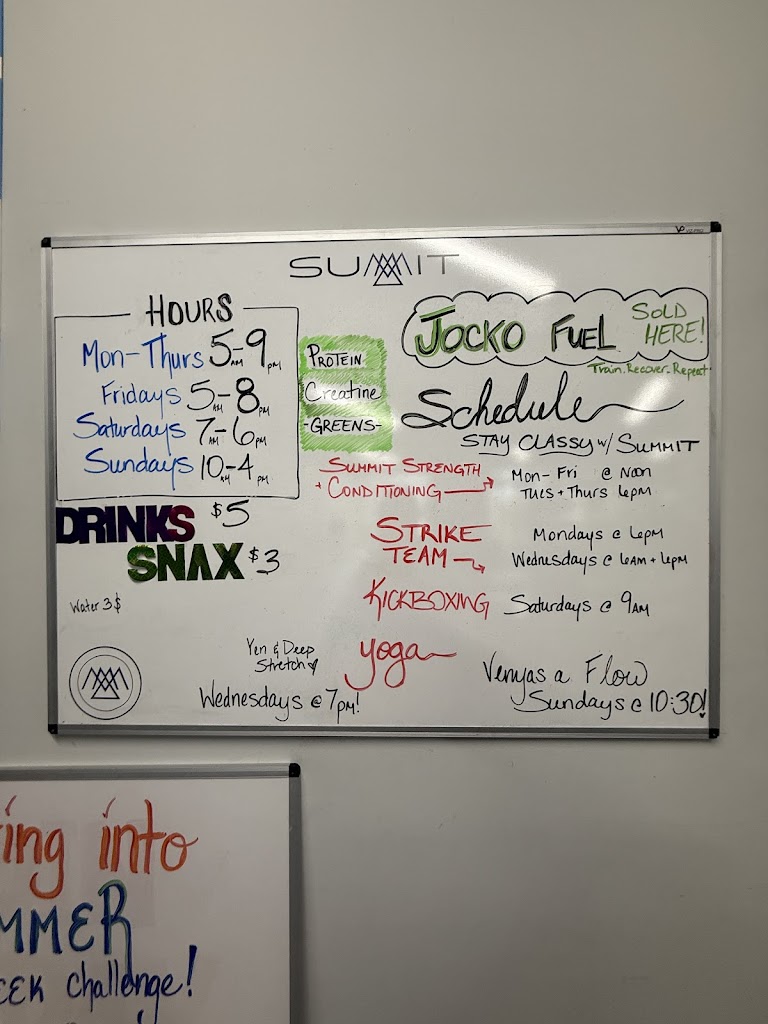 SUMMIT
HOURS
Mon-Thurs 5AM-9PM
Fridays 5AM-8PM
Saturdays 7AM-6PM
Sundays 10AM-4PM
PROTEIN
Creatine
-GREENS-
JOCKO FUEL SOLD HERE!
Train. Recover. Repeat.
Schedule
STAY CLASSY w/ SUMMIT
SUMMIT STRENGTH
+ CONDITIONING
Mon-Fri @ Noon
TUES + Thurs 6PM
STRIKE
TEAM
Mondays @ 6PM
Wednesdays @ 6AM + 6PM
KICKBOXING Saturdays @ 9AM
DRINKS $5
SNAX $3
Water 3$
yoga
Yen & Deep
Stretch
Wednesdays @ 7PM!
Venyas a Flow
Sundays @ 10:30!
ing into
MMER
EEK challenge!